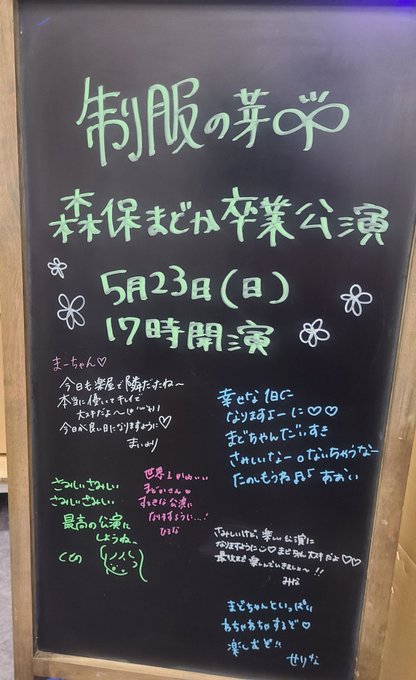 制服の芽
森保まどか卒業公演
5月23日(日)
17時開演
まーちゃん♡
今日も楽屋で隣だったね〜
本当に優しくてキレイで
大スキだよ〜
今日が良い日になりますように♡
まいより
幸せな1日に
なりますよーに♡♡
まどちゃんだいすき
さみしいなー。ないちゃうなー
たのしもうね♪♪ あおい
さみしいさみしい
さみしいさみしい
最高の公演に
しようね、
世界一かわいい
まどかさん
すてきな公演に
なりますように…!
ひでな
さみしいけど、楽しい公演に
なりますように♡まどちゃん大スキだよ♡♡
最後まで楽しんでいきましょ〜!!
みな
まどちゃんといっぱい
あちゃあちゃするぞ♡
楽しむぞ!!
せりな